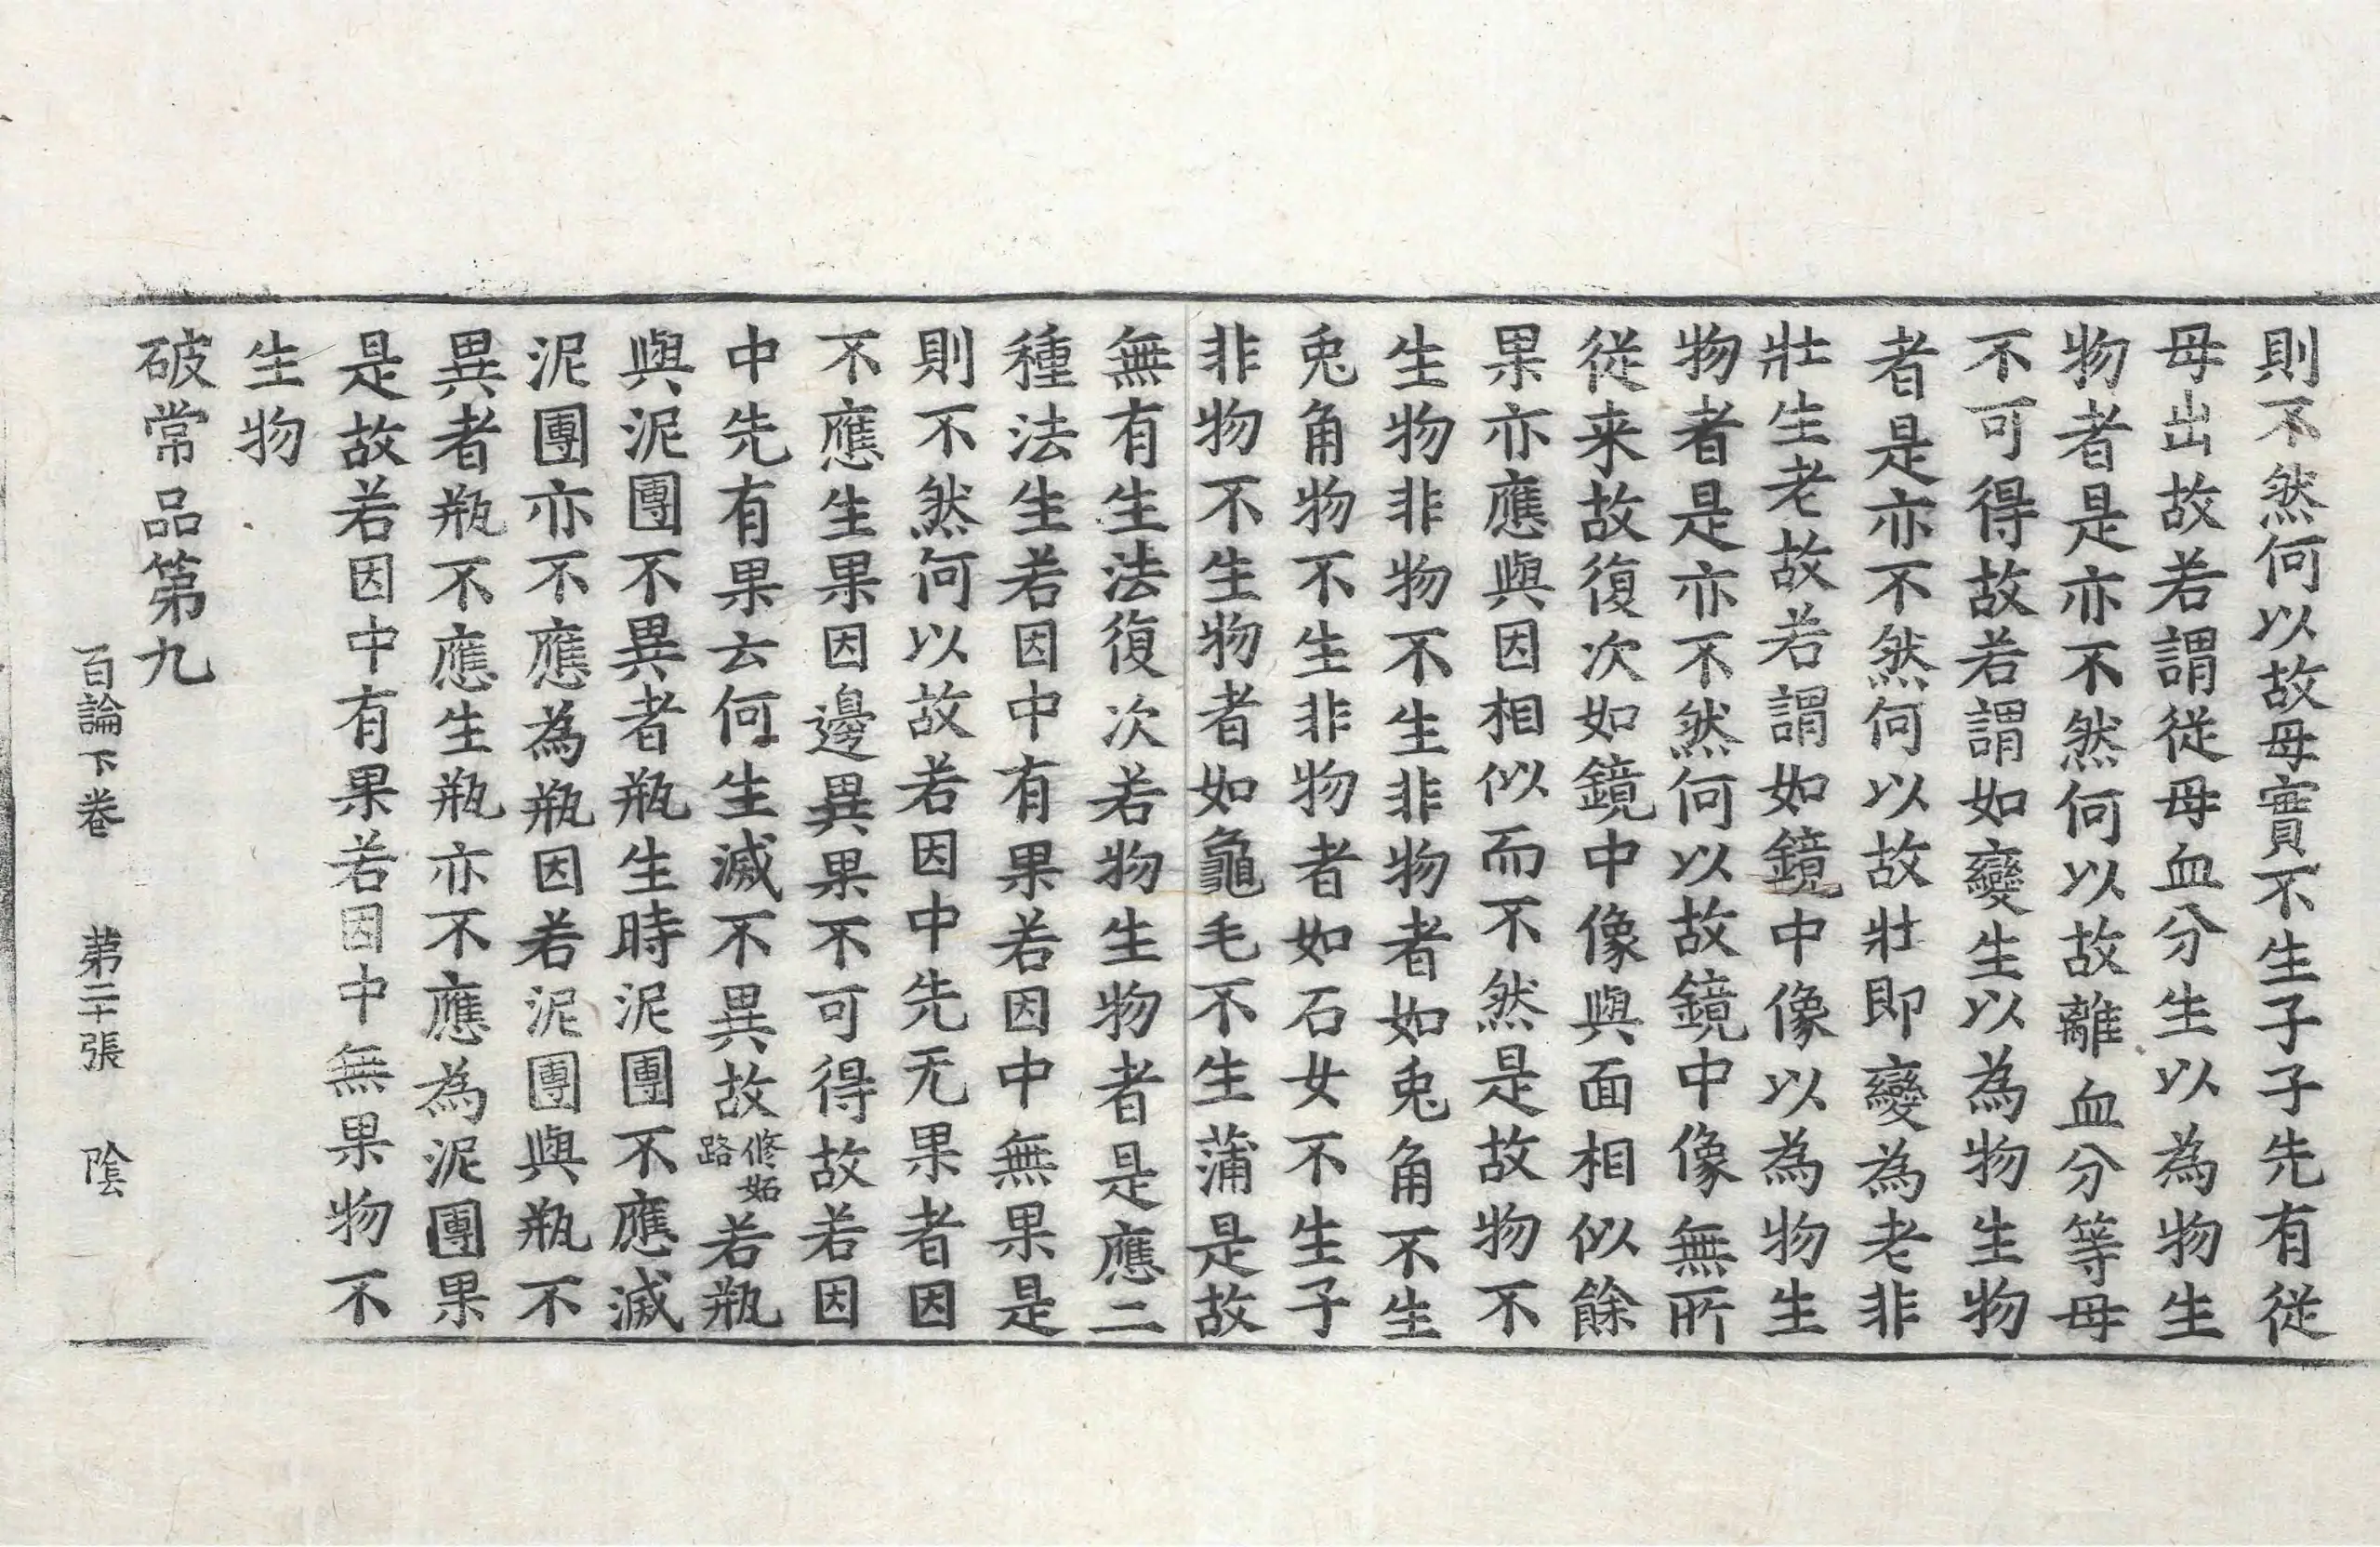 則不然何以故母實不生子子先有從
母出故若謂從母血分生以為物生
物者是亦不然何以故離血分等母
不可得故若謂如變生以為物生物
者是亦不然何以故壯即變為老非
壯生老故若謂如鏡中像以為物生
物者是亦不然何以故鏡中像無所
從来故復次如鏡中像與面相似餘
果亦應與因相似而不然是故物不
生物非物不生非物者如兎角不生
兎角物不生非物者如石女不生子
非物不生物者如龜毛不生蒲是故
無有生法復次若物生物者是應二
種法生若因中有果若因中無果是
則不然何以故若因中先无果者因
不應生果因邊異果不可得故若因
中先有果云何生滅不異故修妬路若瓶
與泥團不異者瓶生時泥團不應滅
泥團亦不應為瓶因若泥團與瓶不
異者瓶不應生瓶亦不應為泥團果
是故若因中有果若因中無果物不
生物
破常品第九
百論下卷 第二十張 陰